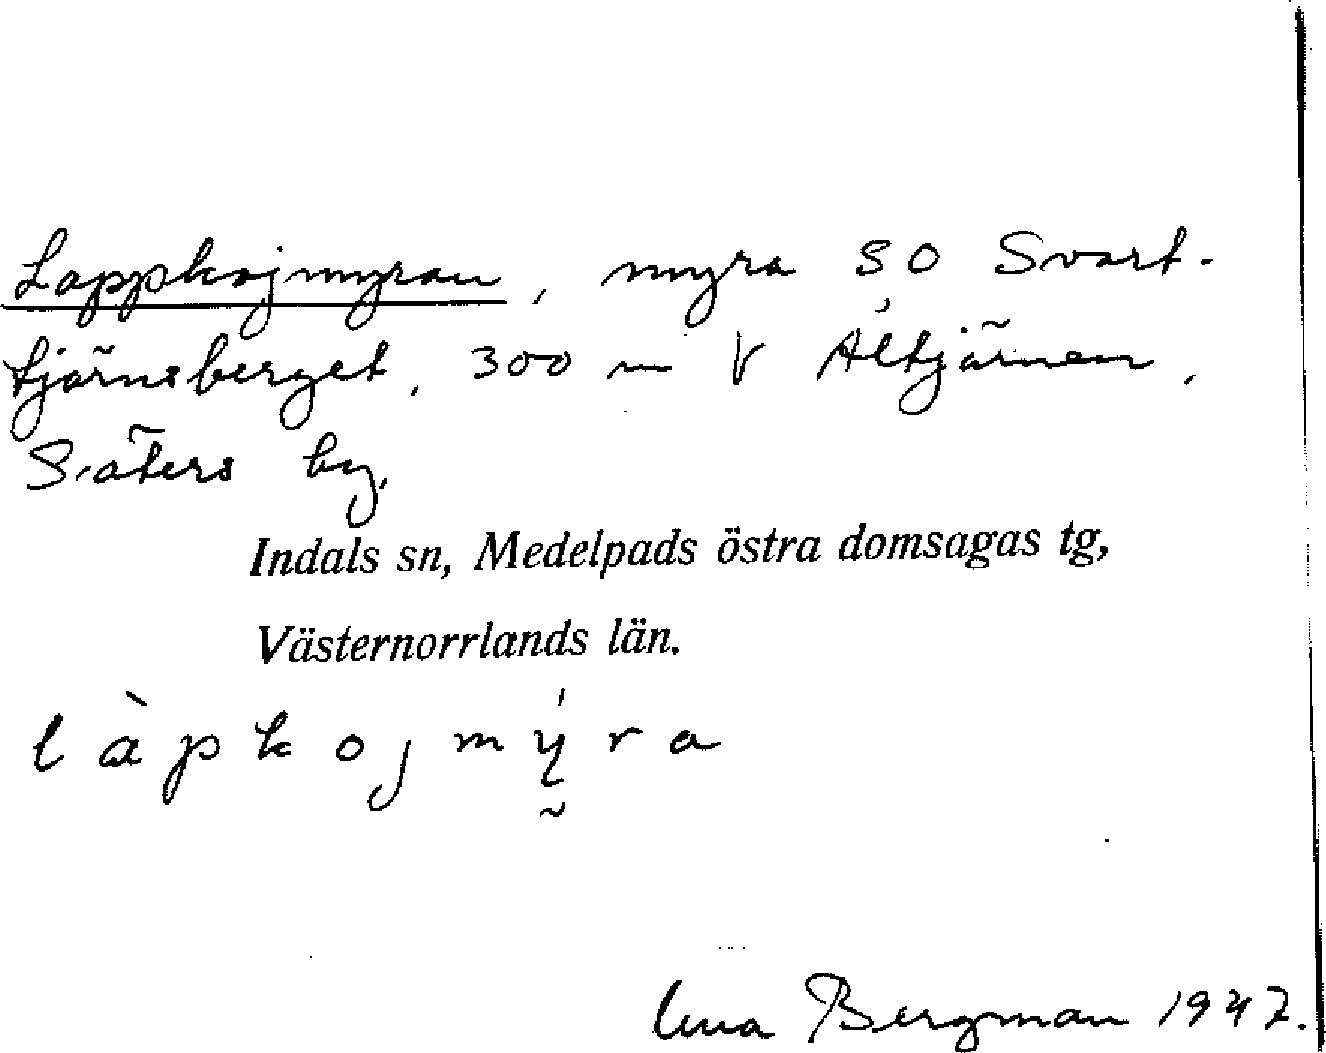 Lappkojmyran, myra SO Svart-
tjärnsberget, 300 m V Åltjärnen,
Säters by.
Indals sn, Medelpads östra domsagas tg,
Västernorrlands län.
làpkojmý̰ra
Bergman 1947.